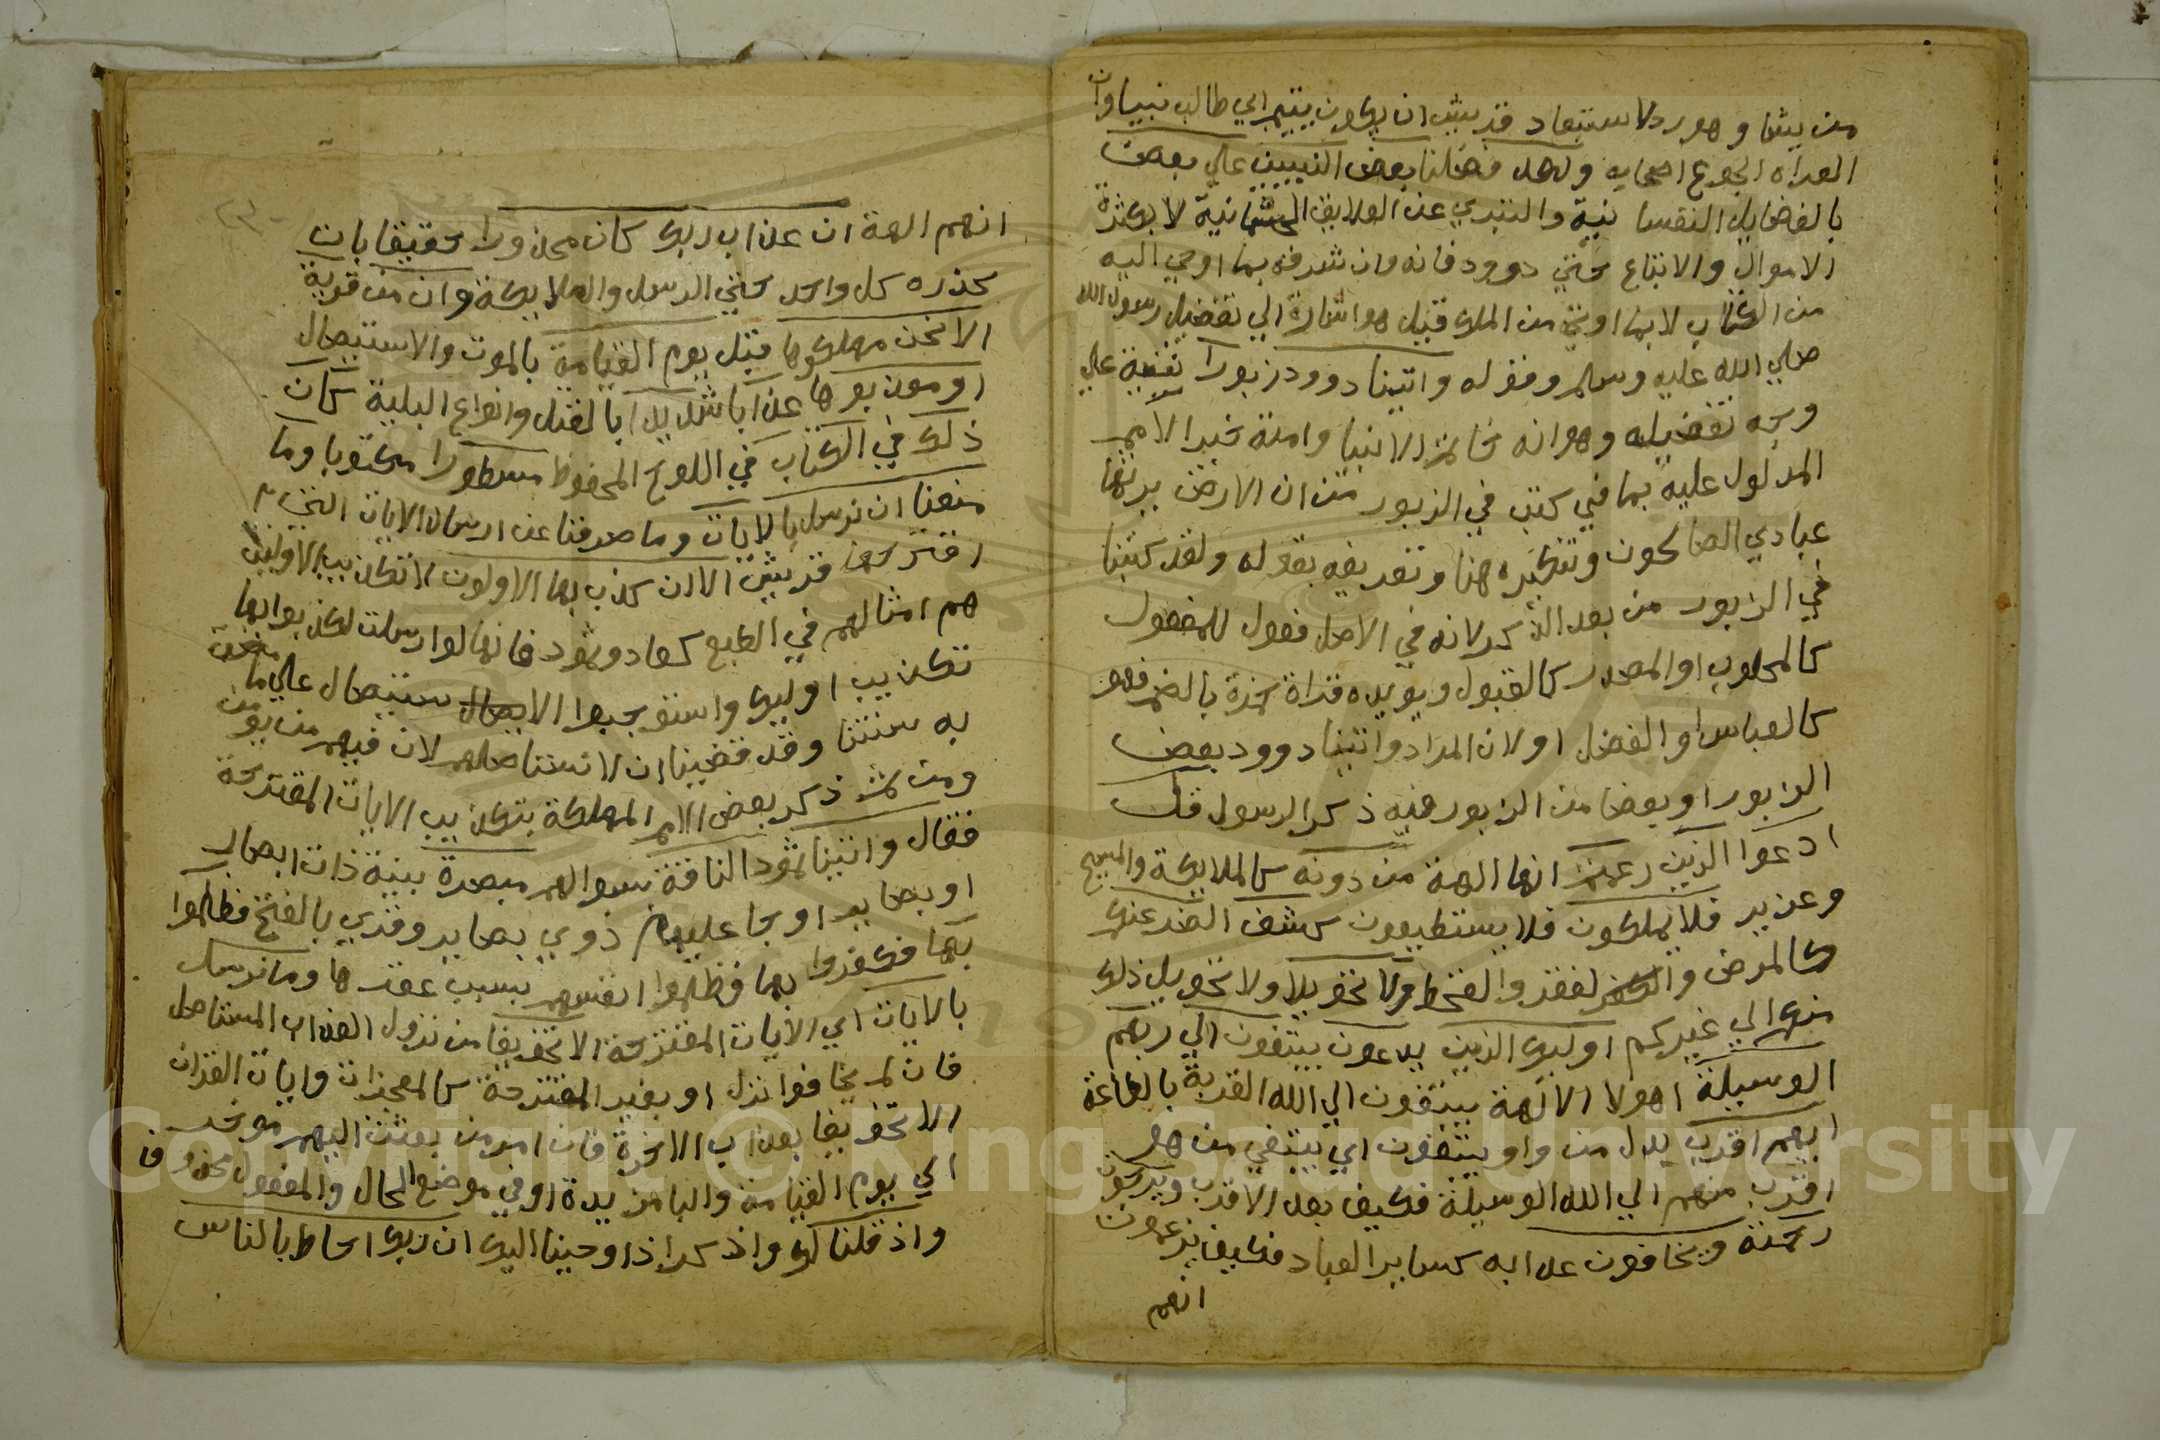 من يشا وهو رد لاستبعاد قريش ان يكون يتيم ابي طالب نبيا وان
العراه الجوع اصحابه ولقد فضلنا بعض النبيين علي بعض
بالفضايل النفسانية والتبري عن العلايق الجسمانية لا بكثرة
الاموال والاتباع حتي دوود فانه وان شرفه بما اوحي اليه
من الكتاب لا بما اوتي من الملك قيل هو اشارة الي تفضيل رسول الله
صلي الله عليه وسلم وقوله واتينا دوود زبورا تنبيه علي
وجه تفضيله وهو انه خاتم الانبيا وامته خير الامم
المدلول عليه بما في كتب في الزبور من ان الارض يرثها
عبادي الصالحون وتنكيره هنا وتعريفه بقوله ولقد كتبنا
في الزبور من بعد الذكر لانه في الاصل فعول للمفعول
كالحلوب او المصدر كالقبول ويويده قراة حمزة بالضم فهو
كالعباس او الفضل او لان المراد واتينا دوود بعض
الزبور او بعضا من الزبور فيه ذكر الرسول قل
ادعوا الذين زعمتم انها الهة من دونه كالملايكة والمسيح
وعزير فلا يملكون فلا يستطيعون كشف الضر عنكم
كالمرض والفقر والقحط ولا تحويلا ولا تحويل ذلك
منكم الي غيركم اوليك الذين يدعون يبتغون الي ربهم
الوسيلة اهولا الالهة يبتغون الي الله القربة بالطاعة
ايهم اقرب بدل من واو يبتغون اي يبتغي من هو
اقرب منهم الي الله الوسيلة فكيف بعد الاقرب ويرجون
رحمته ويخافون عذابه كساير العباد فكيف تزعمون
انهم
انهم الهة ان عذاب ربك كان محذورا حقيقا بان
يحذره كل واحد حتي الرسل والملايكة وان من قرية
الا نحن مهلكوها قبل يوم القيامة بالموت والاستيصال
او معذبوها عذابا شديدا بالقتل وانواع البلية كان
ذلك في الكتاب في اللوح المحفوظ مسطورا مكتوبا وما
منعنا ان نرسل بالايات وما صرفنا عن ارسال الايات التي
اقترحها قريش الا ان كذب بها الاولون الا تكذيب الاولين
هم امثالهم في الطبع كعاد وثمود فانها لو ارسلت لكذبوا بها
تكذيب اوليك واستوجبوا الاستيصال علي ما مضت
به سنتنا وقد قضينا ان لا نستاصلهم لان فيهم من يومن
ومن ثم ذكر بعض الامم المهلكة بتكذيب الايات المقترحة
فقال واتينا ثمود الناقة بسوالهم مبصرة بينة ذات ابصار
او بصاير او جاعليهم ذوي بصاير وقري بالفتح فظلموا
بها فكفروا بها فظلموا انفسهم بسبب عقرها وما نرسل
بالايات اي الايات المقترحة الا تخويفا من نزول العذاب المستاصل
فان لم يخافوا نزل او بغير المقترحة كالمعجزات وايات القران
الا تخويفا بعذاب الاخرة فان امر من بعثت اليهم موخر
الي يوم القيامة والبا مزيدة او في موضع الحال والمفعول محذوف
واذ قلنا لك واذكر اذ اوحينا اليك ان ربك احاط بالناس
Copyright © King Saud University